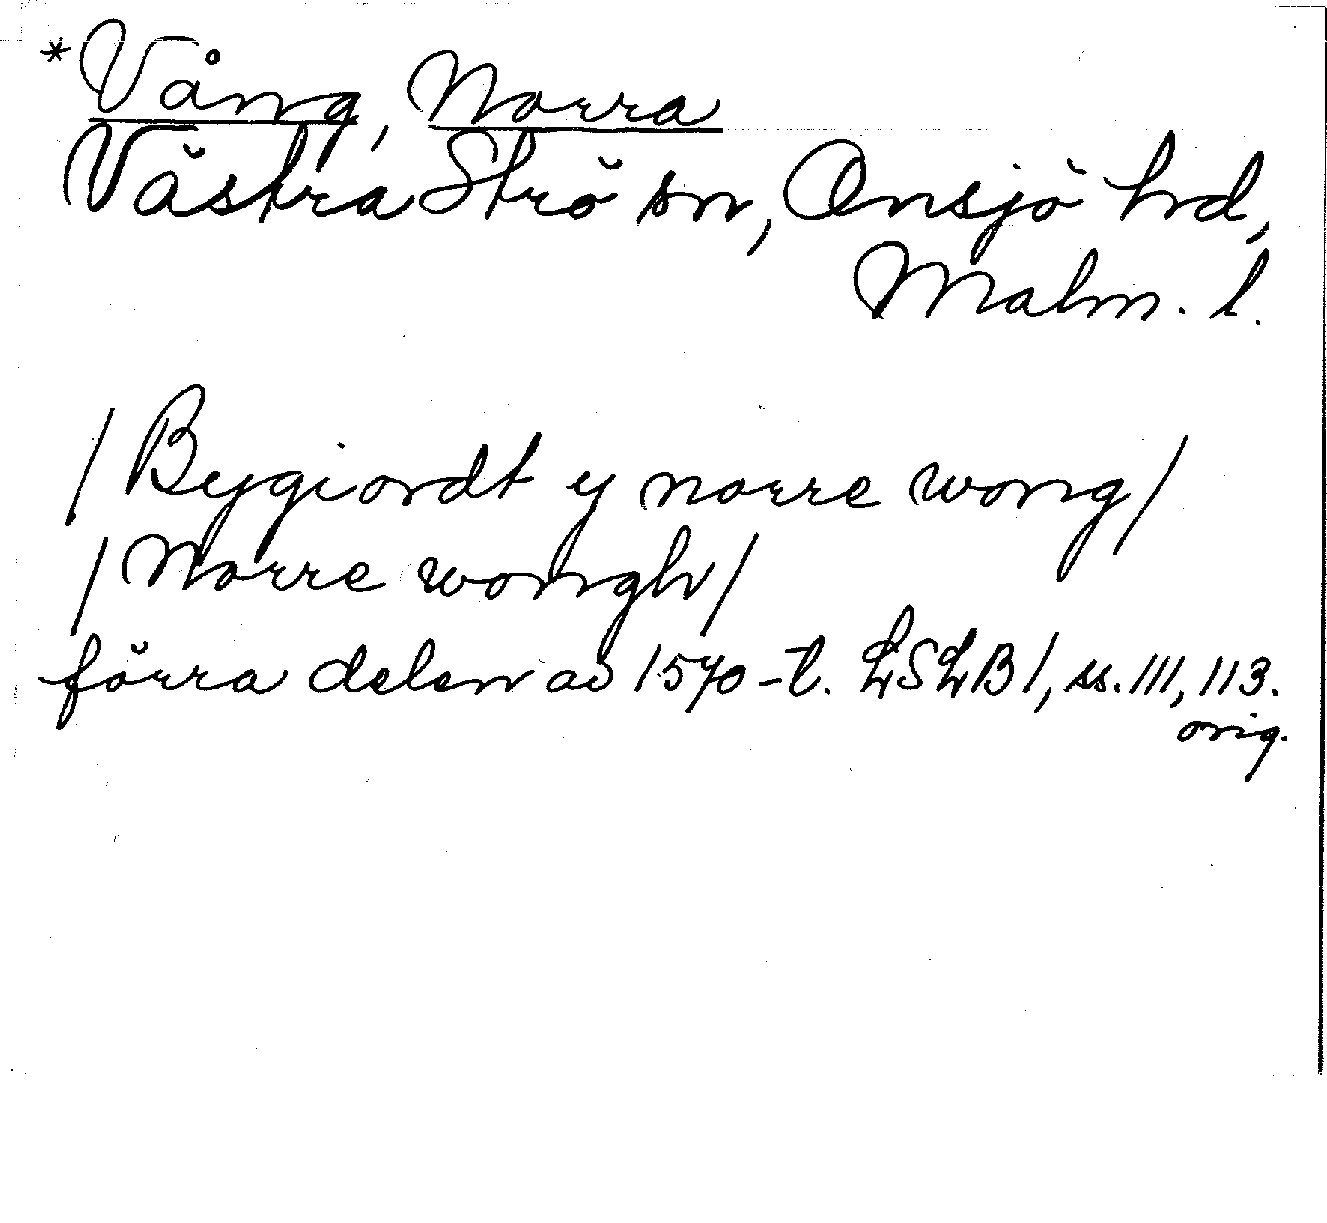 *Vång, Norra
Västra Strö sn, Onsjö hd,
Malm. l.
/Bygiordt y norre wong/
/Norre wongh/
förra delen av 1570-t. LSLB 1, ss. 111, 113.
orig.